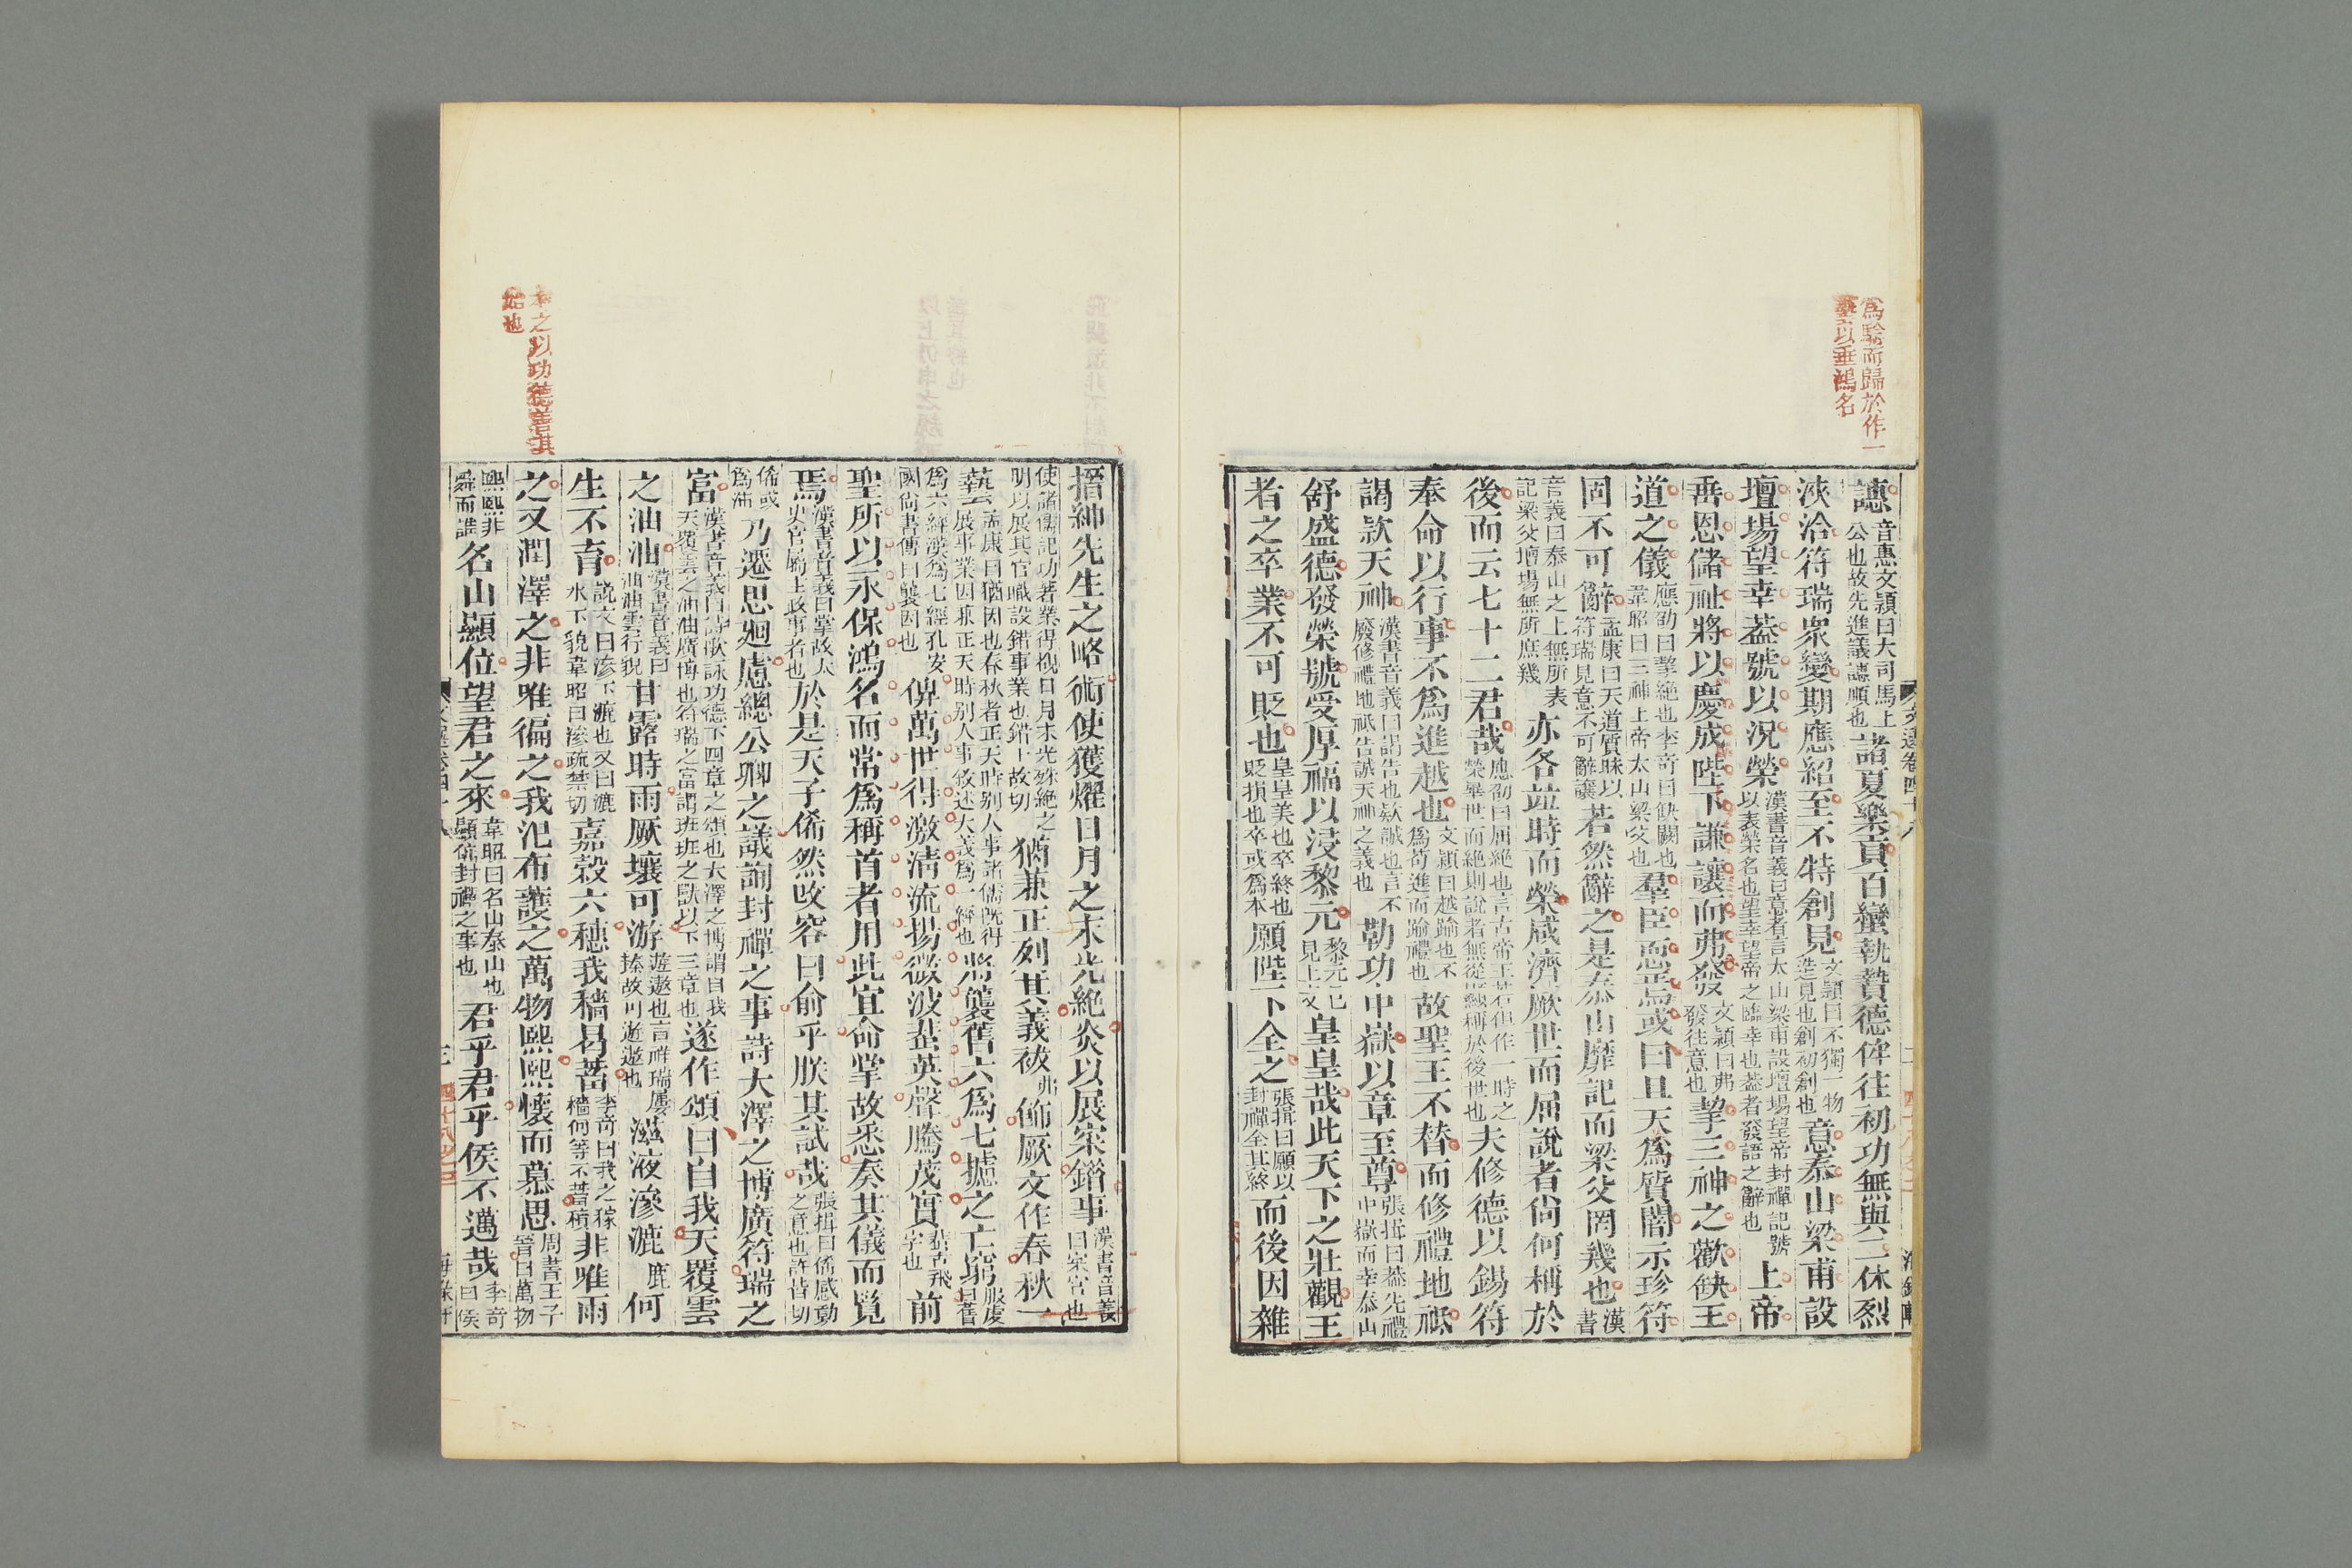 為騐而歸於作一
藝以垂鴻名
譓音惠文潁曰大司馬上公也故先進議譓順也諸夏樂貢百蠻執贄德侔往初功無與二休烈
浹洽符瑞衆變期應紹至不特創見文潁曰不獨一物造見也創初創也意泰山梁甫設
壇場望幸葢號以況榮漢書音義曰意者言太山梁甫設壇場望帝封禪記號以表榮名也望幸望帝之臨幸也葢者發語之辭也上帝
垂恩儲祉將以慶成陛下謙讓而弗發文潁曰弗發往意也挈三神之歡缺王
道之儀應劭曰挈絶也李竒曰缺闕也韋昭曰三神上帝太山梁父也羣臣恧焉或曰且天爲質闇示珍符
固不可辭孟康曰天道質昧以符瑞見意不可辭讓若然辭之是泰山靡記而梁父罔幾也漢書
音義曰泰山之上無所表記梁父壇場無所庶幾亦各竝時而榮咸濟厥世而屈說者尙何稱於
後而云七十二君哉應劭曰屈絶也言古帝王若但作一時之榮畢世而絶則說者無從顯稱於後世也夫修德以錫符
奉命以行事不爲進越也文潁曰越踰也不爲苟進而踰禮也故聖王不替而修禮地祗
謁欵天神漢書音義曰謁告也欵誠也言不廢修禮地祇告誠天神之義也勒功中嶽以章至尊張揖曰葢先禮中嶽而幸泰山
舒盛德發榮號受厚福以浸黎元黎元已見上文皇皇哉此天下之壯觀王
者之卒業不可貶也皇皇美也卒終也貶損也卒或爲本願陛下全之張揖曰願以封禪全其終而後因雜
本之以功德善其
始也
搢紳先生之略術使獲燿日月之末光絶炎以展寀錯事漢書音義曰寀官也
使諸儒記功著業得覩日月末光殊絶之明以展其官職設錯事業也錯十故切猶兼正列其義祓弗飾厥文作春秋一
藝孟康曰猶因也春秋者正天時别人事諸儒旣得展事業因兼正天時别人事敘述大義爲一經也將襲舊六爲七攄之亡窮服虔曰舊
爲六經漢爲七經孔安國尙書傳曰襲因也俾萬世得激淸流揚微波蜚英聲騰茂實蜚古飛字也前
聖所以永保鴻名而常爲稱首者用此宜命掌故悉奏其儀而覧
焉漢書音義曰掌故太史官屬主故事者也於是天子俙然改容曰俞乎朕其試哉張揖曰俙感動之意也許皆切
俙或爲沛乃遷思廻慮總公卿之議詢封禪之事詩大澤之博廣符瑞之
富漢書音義曰詩歌詠功德下四章之頌也大澤之博謂自我天覆雲之油油廣博也符瑞之富謂班班之獸以下三章也遂作頌曰自我天覆雲
之油油漢書音義曰油油雲行貌甘露時雨厥壤可游遊遨也言祥瑞屢臻故可遊遨也滋液滲漉鹿何
生不育說文曰滲下漉也又曰漉水下貌韋昭曰滲疏禁切嘉穀六穗我穡曷蓄李竒曰我之稼穡何等不蓄積非唯雨
之又潤澤之非唯徧之我汜布護之萬物熙熙懷而慕思周書王子晉曰萬物
熙熙非舜而誰名山顯位望君之來韋昭曰名山泰山也顯位封禪之事也君乎君乎侯不邁哉李竒曰侯